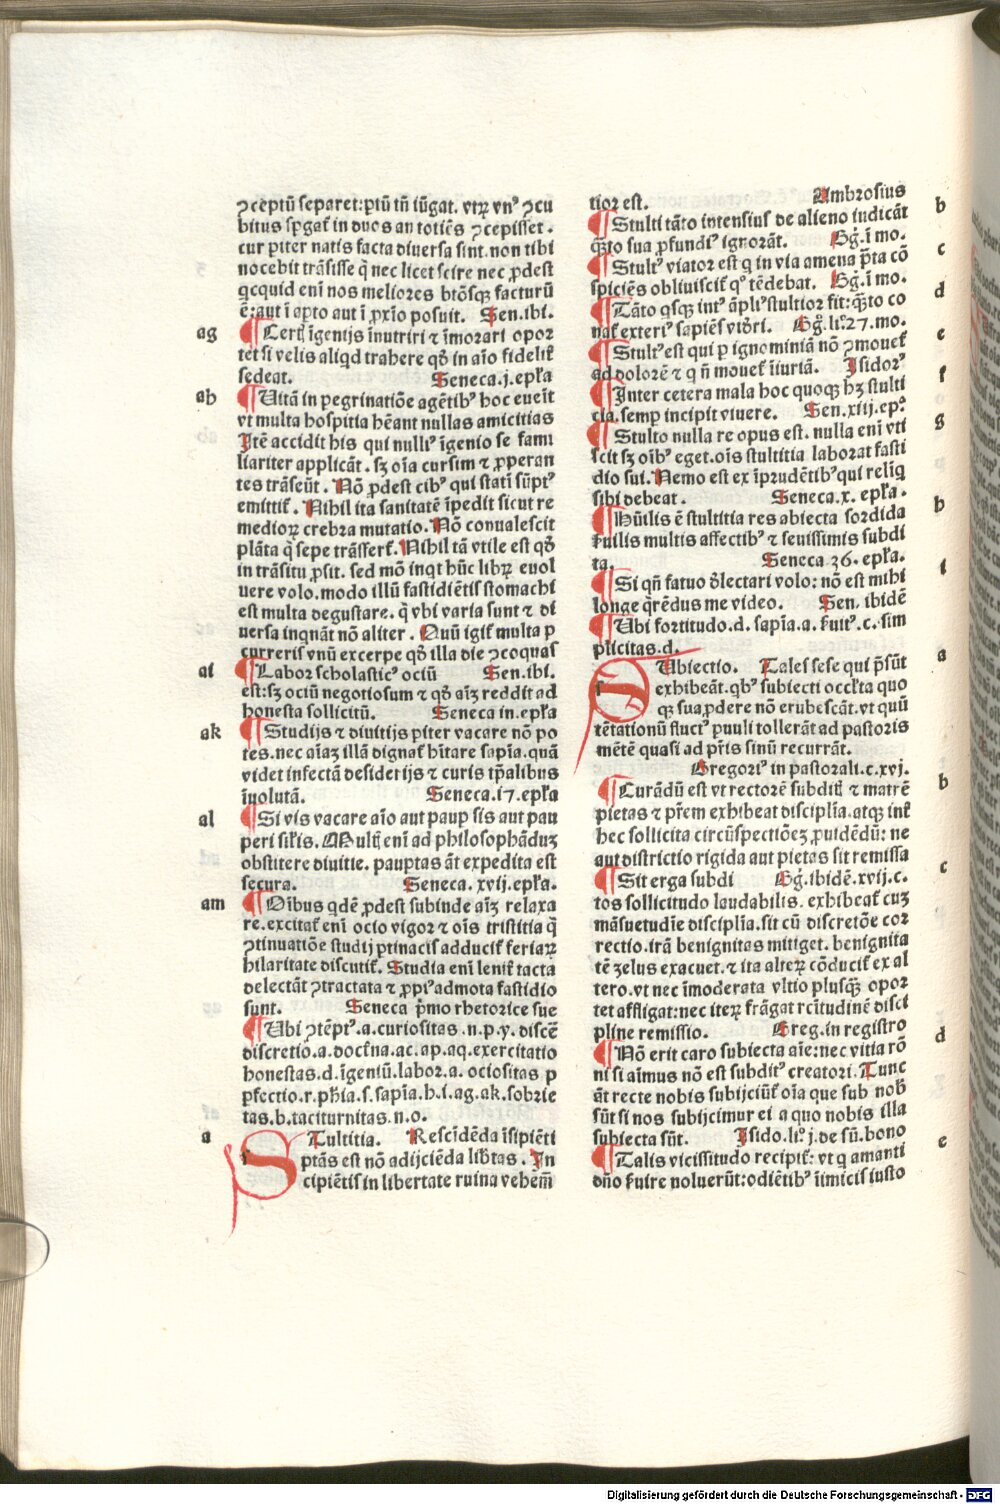 ↄceptū separet: ptū tn̄ iūgat. vtꝝ vnꝰ ↄcu
bitus spgat̄ in duos an totiēs ↄcepisset.
cur piter natis facta diuersa sint. non tibi
nocebit trāsisse q̄ nec licet scire nec ꝓdest
qcquid eni nos meliores btōsqꝫ facturū
ē: aut ī apto aut ī ꝓxīo posuit. Sen. ibi.
ag
¶ Certꝭ īgenijs īnutriri ⁊ īmorari opor
tet si velis aliqd trahere qd̄ in aīo fidelit̄
sedeat. Seneca. j. epl̄a
ah
¶ Uitā in pegrinatiōe agētibꝰ hoc eueīt
vt multa hospitia hēant nullas amicitias
Itē accidit his qui nullꝰ īgenio se fami
liariter applicāt. sꝫ oīa cursim ⁊ ꝓperan
tes trāseūt. Nō ꝓdest cibꝰ qui statī sūptꝰ
emittit̄. Nihil ita sanitatē īpedit sicut re
medioꝝ crebra mutatio. Nō conualescit
plāta q̄ sepe trāssert̄. Nihil tā vtile est qd̄
in trāsitu ꝓsit. sed mō inqt hūc libꝝ euol
uere volo. modo illū fastidiētis stomachi
est multa degustare. q̄ vbi varia sunt ⁊ di
uersa inqnāt nō aliter. Quū igit̄ multa p
curreris vnū excerpe qd̄ illa die ↄcoquas
ai
¶ Labor scholasticꝰ ociū Sen. ibi.
est: sꝫ ociū negotiosum ⁊ qd̄ aīꝫ reddit ad
honesta sollicitū. Seneca in. epl̄a
ak
¶ Studijs ⁊ diuitijs piter vacare nō po
tes. nec aīaꝫ illā dignat̄ hītare sapīa. quā
videt infectā desiderijs ⁊ curis tp̄alibus
īuolutā. Seneca. 17. epl̄a
al
¶ Si vis vacare aīo aut paup sis aut pau
peri sil̄is. Multꝭ enī ad philosophāduꝫ
obstitere diuitie. pauptas āt expedita est
secura. Seneca. xvij. epl̄a.
am
¶ Oībus qdē ꝓdest subinde aīꝫ relaxa
re. excitat̄ enī ocio vigor ⁊ oīs tristitia q̄
ↄtinuatiōe studij ptinacis adducit̄ feriaꝝ
hilaritate discutit̄. Studia enī lenit̄ tacta
delectāt ↄtractata ⁊ ꝓpiꝰ admota fastidio
sunt. Seneca p̄mo rhetorice sue
¶ Ubi ↄtēptꝰ. a. curiositas. n. p. y. discē
discretio. a. doct̄na. ac. ap. aq. exercitatio
honestas. d. īgeniū. labor. a. ociositas p
pfectio. r. phīa. s. sapīa. h. i. ag. ak. sobrie
tas. b. taciturnitas. n. o.
a
STultitia. Rescīdēda īsipiēti
ptās est nō adijciēda lib̄tas. In
cipiētis in libertate ruina vehem̄
tior est. Ambrosius
b
¶ Stulti tāto intensius de alieno iudicāt
qͣ̄to sua ꝓfundiꝰ ignorāt. Gg̊. ī mo.
c
¶ Stultꝰ viator est q in via amena p̄ta cō
spiciēs obliuiscit̄ qͦ tēdebat. Gg̊. ī mo.
d
¶ Tāto qsqꝫ intꝰ āpliꝰ stultior fit: qͣ̄to co
nat̄ exteriꝰ sapiēs videri. Gg̊. liꝰ 27. mo.
e
¶ Stultꝰ est qui p ignominiā nō ↄmouet̄
ad dolorē ⁊ q n̄ mouet̄ īiuriā. Isidorꝰ
f
¶ Inter cetera mala hoc quoqꝫ hꝫ stulti
cia. semp incipit viuere. Sen. xiij. epꝰ.
g
¶ Stulto nulla re opus est. nulla enī vti
scit sꝫ oībꝰ eget. oīs stultitia laborat fasti
dio sui. Nemo est ex īprudētibꝰ qui reliq
sibi debeat. Seneca. x. epl̄a.
h
¶ Hūilis ē stultitia res abiecta sordida
s̄uilis multis affectibꝰ ⁊ seuissimis subdi
ta. Seneca 36. epl̄a.
i
¶ Si qn̄ fatuo d̄lectari volo: nō est mihi
longe q̄rēdus me video. Sen. ibidē
¶ Ubi fortitudo. d. sapīa. a. s̄uitꝰ. c. sim
plicitas. d.
a
SUbiectio. Tales sese qui p̄sūt
exhibeāt. qbꝰ subiecti occl̄ta quo
qꝫ sua ꝓdere nō erubescāt. vt quū
tētationū fluctꝰ puuli tollerāt ad pastoris
mētē quasi ad mr̄is sinū recurrāt.
Gregoriꝰ in pastorali. c. xvj.
b
¶ Curādū est vt rectorē subditꝭ ⁊ matrē
pietas ⁊ pr̄em exhibeat disciplīa. atqꝫ int̄
hec sollicita circūspectiōeꝫ ꝓuidēdū: ne
aut districtio rigida aut pietas sit remissa
c
¶ Sit erga subdi Gg̊. ibidē. xvij. c.
tos sollicitudo laudabilis. exhibeat̄ cuꝫ
māsuetudīe disciplīa. sit cū discretōe cor
rectio. irā benignitas mitiget. benignita
tē zelus exacuet. ⁊ ita alterꝝ cōducit̄ ex al
tero. vt nec īmoderata vltio plusqͣ̄ opor
tet affligat: nec iterꝝ frāgat rc̄titudinē disci
pline remissio. Greg. in registro
d
¶ Nō erit caro subiecta aīe: nec vitia rō
ni si aīmus nō est subditꝰ creatori. Tunc
āt recte nobis subijciūt̄ oīa que sub nob̄
sūt si nos subijcimur ei a quo nobis illa
subiecta sūt. Isido. liꝰ j. de sū. bono
e
¶ Talis vicissitudo recipit̄: vt q amanti
dn̄o s̄uire noluerūt: odiētibꝰ īimicis iusto